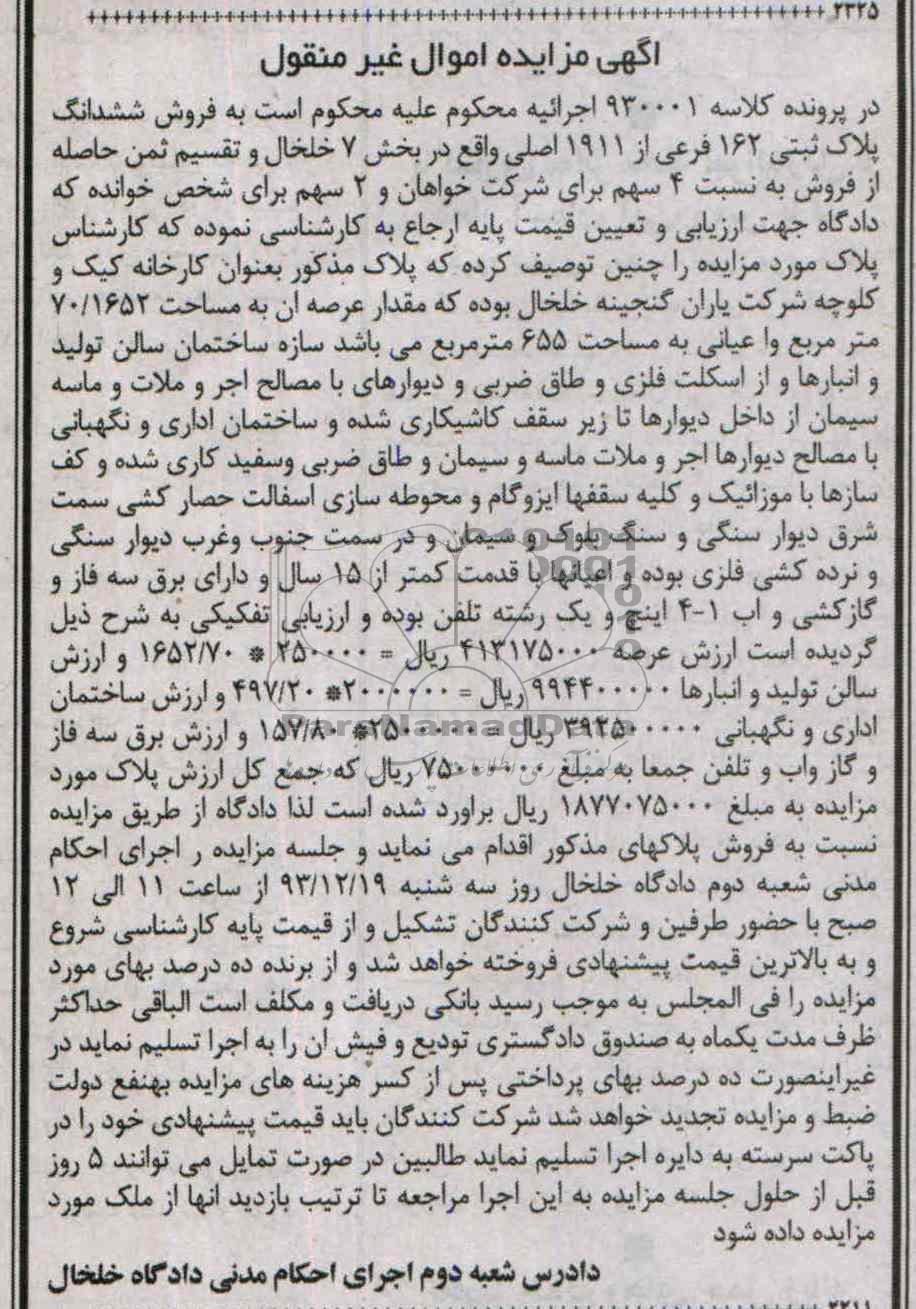 ۲۳۲۵
اگهی مزایده اموال غیر منقول
در پرونده کلاسه ۹۳۰۰۰۱ اجرائیه محکوم علیه محکوم است به فروش ششدانگ
پلاک ثبتی ۱۶۲ فرعی از ۱۹۱۱ اصلی واقع در بخش ۷ خلخال و تقسیم ثمن حاصله
از فروش به نسبت ۴ سهم برای شرکت خواهان و ۲ سهم برای شخص خوانده که
دادگاه جهت ارزیابی و تعیین قیمت پایه ارجاع به کارشناسی نموده که کارشناس
پلاک مورد مزایده را چنین توصیف کرده که پلاک مذکور بعنوان کارخانه کیک و
کلوچه شرکت یاران گنجینه خلخال بوده که مقدار عرصه ان به مساحت ۷۰/۱۶۵۲
متر مربع وا عیانی به مساحت ۶۵۵ مترمربع می باشد سازه ساختمان سالن تولید
و انبارها و از اسکلت فلزی و طاق ضربی و دیوارهای با مصالح اجر و ملات و ماسه
سیمان از داخل دیوارها تا زیر سقف کاشیکاری شده و ساختمان اداری و نگهبانی
با مصالح دیوارها اجر و ملات ماسه و سیمان و طاق ضربی وسفید کاری شده و کف
سازها با موزائیک و کلیه سقفها ایزوگام و محوطه سازی اسفالت حصار کشی سمت
شرق دیوار سنگی و سنگ بلوک و سیمان و در سمت جنوب وغرب دیوار سنگی
و نرده کشی فلزی بوده و اعیانها با قدمت کمتر از ۱۵ سال و دارای برق سه فاز و
گازکشی و اب ۱-۴ اینچ و یک رشته تلفن بوده و ارزیابی تفکیکی به شرح ذیل
گردیده است ارزش عرصه ۴۱۳۱۷۵۰۰۰ ریال = ۲۵۰۰۰۰ * ۱۶۵۲/۷۰ و ارزش
سالن تولید و انبارها ۹۹۴۴۰۰۰۰۰ ریال = ۲۰۰۰۰۰۰* ۴۹۷/۲۰ و ارزش ساختمان
اداری و نگهبانی ۳۹۲۵۰۰۰۰۰ ریال = ۲۵۰۰۰۰۰* ۱۵۷/۸۰ و ارزش برق سه فاز
و گاز واب و تلفن جمعا به مبلغ ۷۵۰۰۰۰۰۰ ریال که جمع کل ارزش پلاک مورد
مزایده به مبلغ ۱۸۷۷۰۷۵۰۰۰ ریال براورد شده است لذا دادگاه از طریق مزایده
نسبت به فروش پلاکهای مذکور اقدام می نماید و جلسه مزایده ر اجرای احکام
مدنی شعبه دوم دادگاه خلخال روز سه شنبه ۹۳/۱۲/۱۹ از ساعت ۱۱ الی ۱۲
صبح با حضور طرفین و شرکت کنندگان تشکیل و از قیمت پایه کارشناسی شروع
و به بالاترین قیمت پیشنهادی فروخته خواهد شد و از برنده ده درصد بهای مورد
مزایده را فی المجلس به موجب رسید بانکی دریافت و مکلف است الباقی حداکثر
ظرف مدت یکماه به صندوق دادگستری تودیع و فیش ان را به اجرا تسلیم نماید در
غیراینصورت ده درصد بهای پرداختی پس از کسر هزینه های مزایده بهنفع دولت
ضبط و مزایده تجدید خواهد شد شرکت کنندگان باید قیمت پیشنهادی خود را در
پاکت سرسته به دایره اجرا تسلیم نماید طالبین در صورت تمایل می توانند ۵ روز
قبل از حلول جلسه مزایده به این اجرا مراجعه تا ترتیب بازدید انها از ملک مورد
مزایده داده شود
دادرس شعبه دوم اجرای احکام مدنی دادگاه خلخال